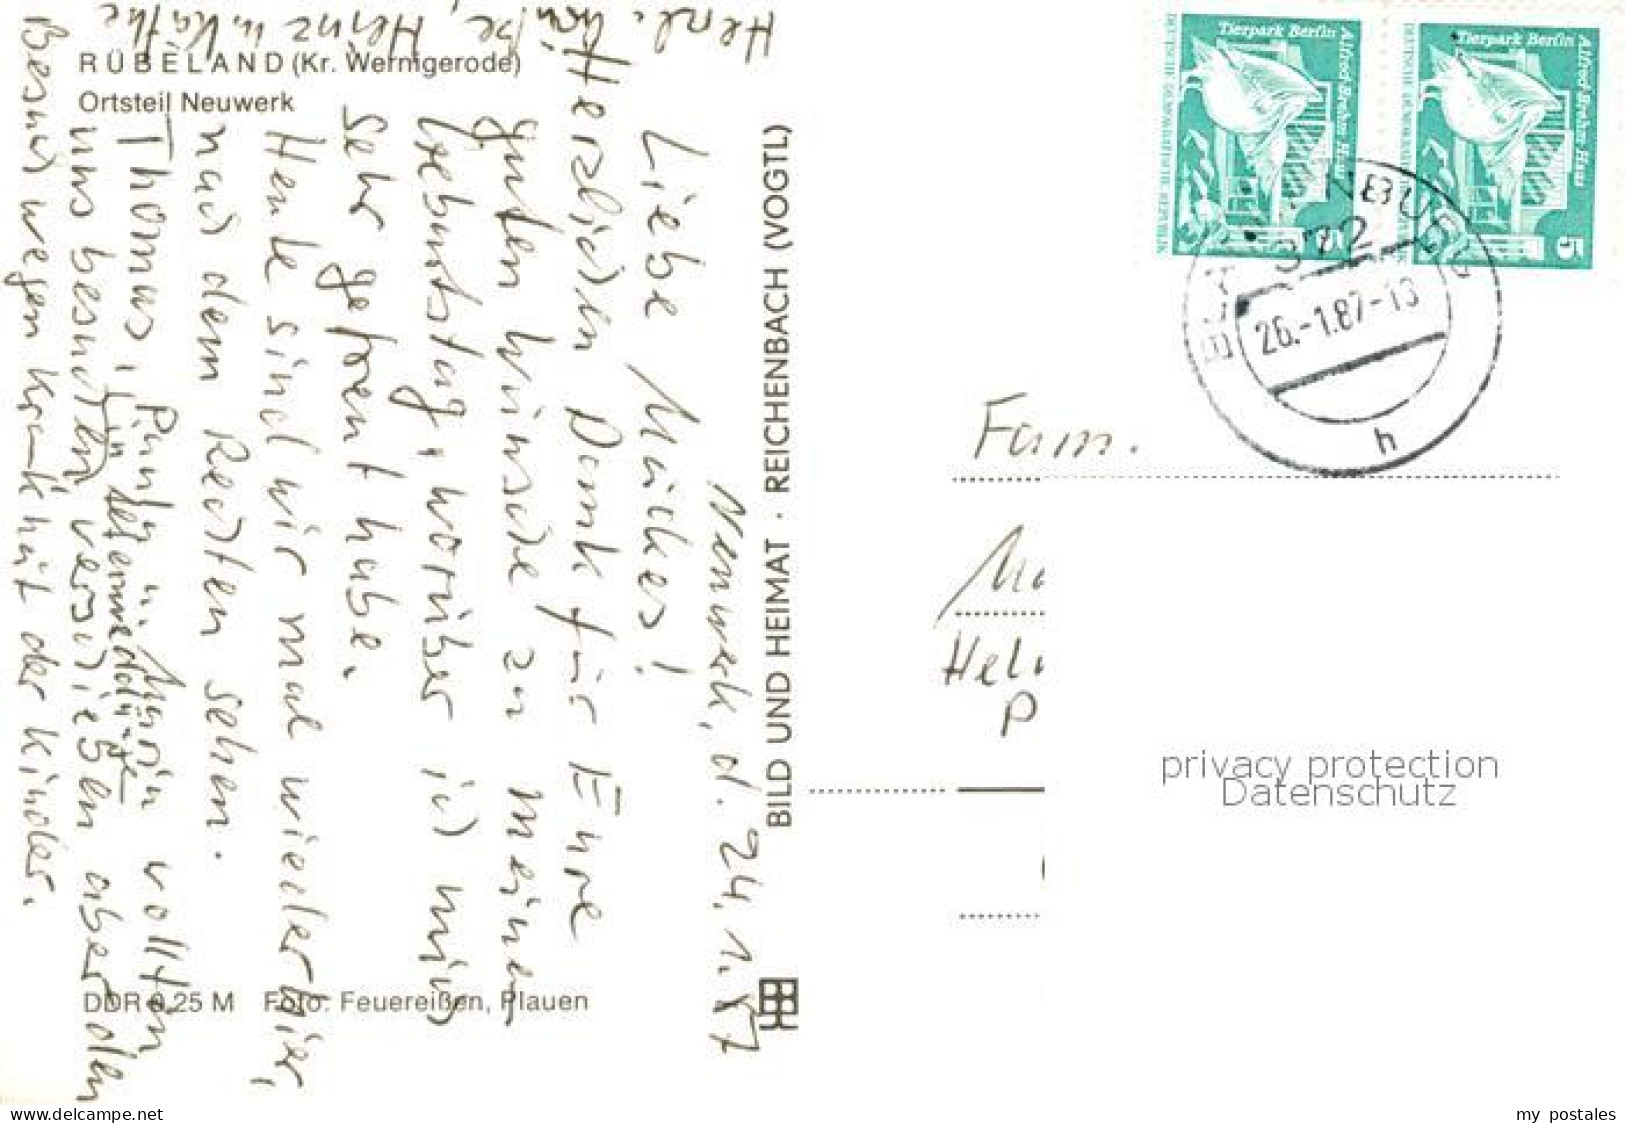 RÜBELAND (Kr. Wernigerode)
Ortsteil Neuwerk
Neuwerk, d. 24.1.87
Liebe
Herzlichen Dank für Eure
guten Wünsche zu meinem
Geburtstag, worüber ich mich
sehr gefreut habe.
Heute sind wir mal wieder hier,
nach dem Rechten sehen.
Thomas, wollten
uns besuchen, verschieben aber den
Besuch wegen Krankheit der Kinder.
Herzl. Grüße, Heinz u. Käthe
DDR 0,25 M Foto: Feuereißen, Plauen
BILD UND HEIMAT · REICHENBACH (VOGTL)
Tierpark Berlin
Alfred-Brehm-Haus
DEUTSCHE DEMOKRATISCHE REPUBLIK
5
Tierpark Berlin
Alfred-Brehm-Haus
5
372
26.-1.87-18
h
Fam.
privacy protection
Datenschutz
www.ak-ansichtskarten.de
my postales